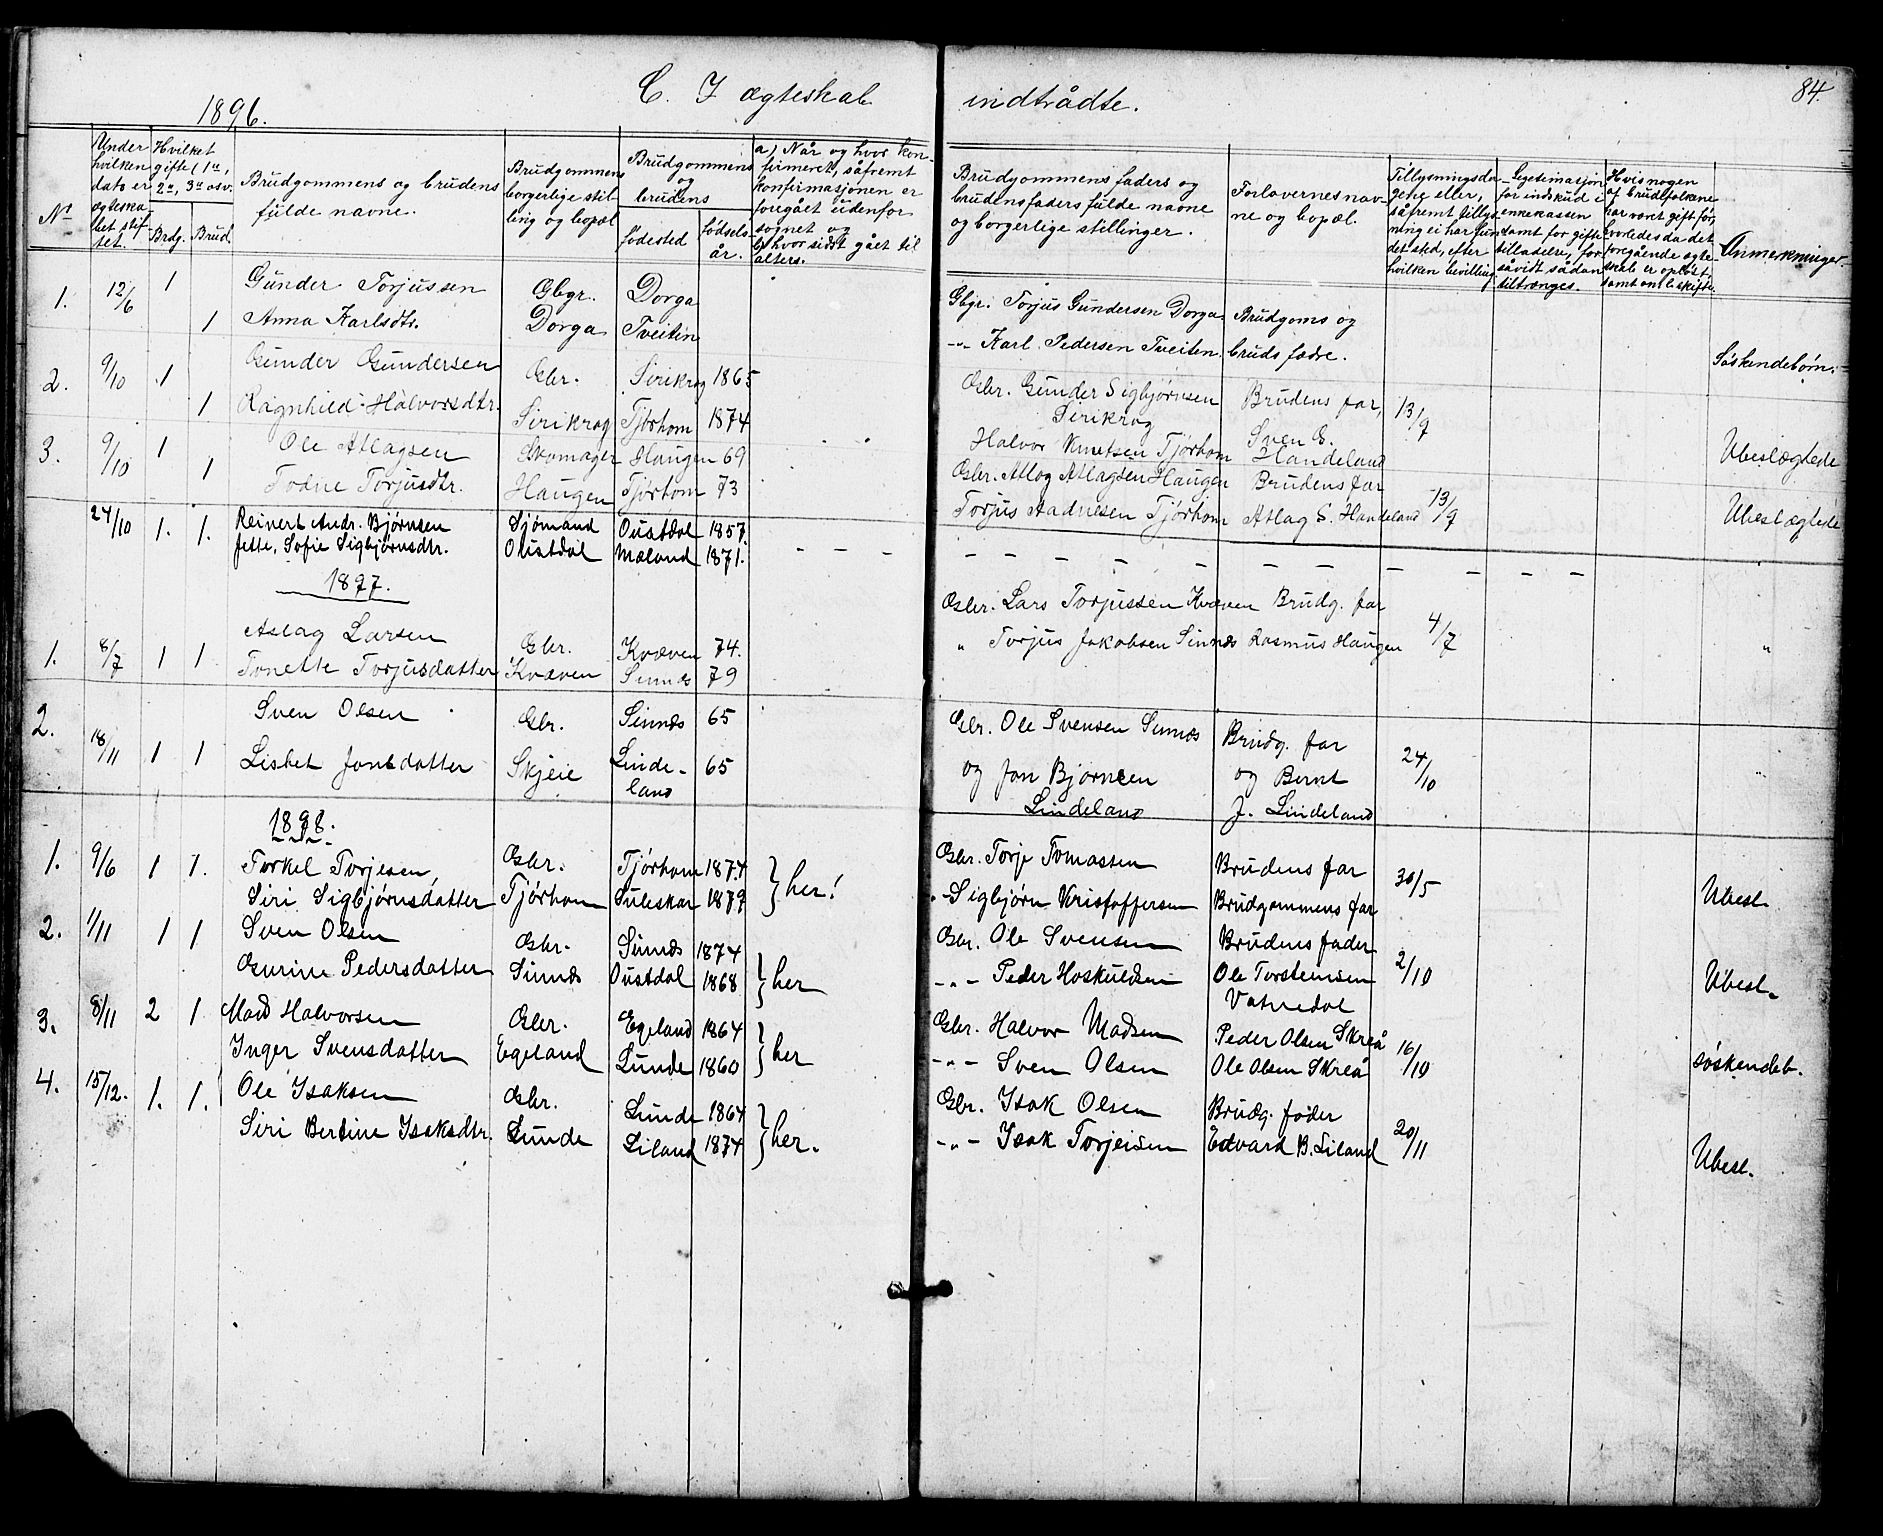 84.
C. I ægteskab indtrådte.
1896.
No
Under hvilken dato er ægteskabet stiftet.
Hvilket gifte (1ste, 2det, 3die osv.
Brdg. Brud.
Brudgommens og brudens fulde navne.
Brudgommens borgerlige stilling og bopæl
Brudgommens og brudens
fødested
fødselsår.
a) Når og hvor konfirmeret, såfremt konfirmasjonen er foregået udenfor sognet og
b) hvor sidst gået til alters.
Brudgommens faders og brudens faders fulde navne og borgerlige stillinger.
Forlovernes navne og bopæl.
Tillysningsdagene eller, såfremt tillysning ei har fundet sted, efter hvilken bevilling
Legetimasjon for indskud i enkekassen samt for giftetilladelse, forsåvidt sådan tiltrænges.
Hvis nogen af brudefolkene har været gift før, hvorledes da det foregående ægteskab er opløst, samt om beskifte.
Anmerkninger.
1. 12/6 1 Gunder Torjussen Gbgr. Dorga Gbgr. Torjus Gundersen Dorga Brudgoms og
1 Anna Karlsdtr. Dorga Tveiten -"- Karl Pedersen Tveiten bruds fædre. Søskendebørn.
2. 9/10 1 Gunder Gundersen Gbr. Sirikrog 1865 Gbr. Gunder Sigbjørnsen Sirikrog Brudens far, 13/9
1 Ragnhild Halvorsdtr. Sirikrog Tjørhom 1874 Halvor Knutsen Tjørhom Sven E. Handeland Ubeslægtede
3. 9/10 1 Ole Atlagsen Skomager Haugen 69 Gbr. Atlag Atlagsen Haugen Brudens far 13/9
1 Todne Torjusdtr. Haugen Tjørhom 73 Torjus Aadnesen Tjørhom Atlag S. Handeland Ubeslægtede
24/10 1. 1. Reinert Andr. Bjørnsen Sjømand Oustdal 1857.
Jette Sofie Sigbjørnsdtr. Oustdal Mæland 1871. - - - - - - - - - - - - - -
1897.
1. 8/7 1 1 Aslag Larsen Gbr. Kvæven 74. Gbr. Lars Torjussen Kvæven Brudg. far 4/7
Tonette Torjusdatter Kvæven Sinnes 79 " Torjus Jakobsen Sinnes Rasmus Haugen "
2. 18/11 1 1 Sven Olsen Gbr. Sinnes 65 Gbr. Ole Svensen Sinnes Brudg. far 24/10
Lisbet Jonsdatter Skjeie Lindeland 65 og Jon Bjørnsen Lindeland og Bernt J. Lindeland
1898.
1. 9/6 1 1. Torkel Torjesen, Gbr. Tjørhom 1874 } her! Gbr. Torje Tomassen Brudens far 30/5
Siri Sigbjørnsdatter Tjørhom Suleskar 1879 -"- Sigbjørn Kristoffersen Brudgommens far Ubesl.
2. 1/11 1 1 Sven Olsen Gbr. Sinnes 1874 } her Gbr. Ole Svensen Brudens fader 2/10
Gurine Pedersdatter Sinnes Oustdal 1868 -"- Peder Hoskuldsen Ole Torsteinsen Vatnedal Ubesl.
3. 8/11 2 1 Mads Halvorsen Gbr. Egeland 1864 } her Gbr. Halvor Madsen Peder Olsen Skreå 16/10
Inger Svensdatter Egeland Lunde 1860 -"- Sven Olsen Ole Olsen Skreå søskendeb.
4. 15/12. 1. 1. Ole Isaksen Gbr. Lunde 1864 } her. Gbr. Isak Olsen Brudg. fader 20/11
Siri Bertine Isaksdtr. Lunde Liland 1874 -"- Isak Torjeisen Edvard B. Liland Ubesl.